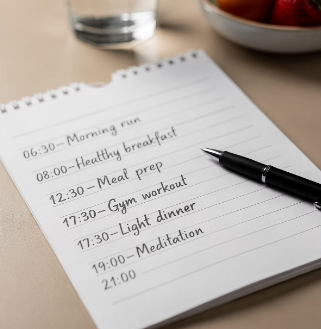 06:30–Morning run
08:00–Healthy breakfast
12:30–Meal prep
17:30–Gym workout
17:30–Light dinner
19:00–Meditation
21:00